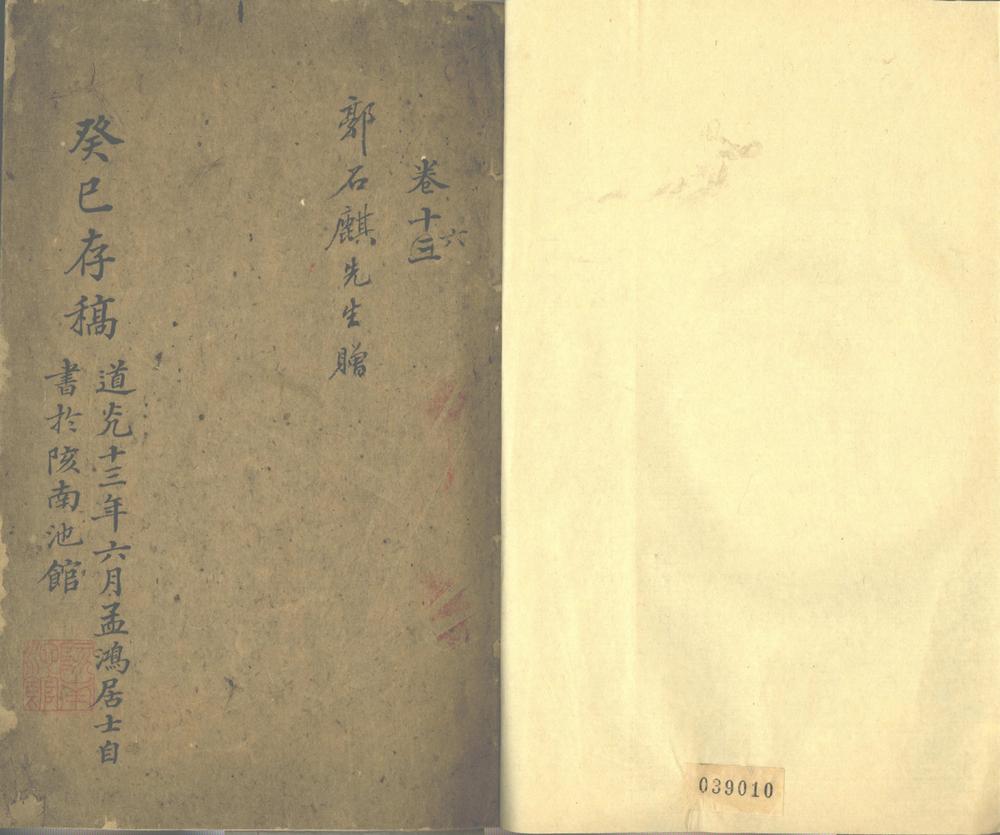 卷十三
六
郭石麒先生贈
癸巳存稿
道光十三年六月孟鴻居士自
書於陔南池館
039010